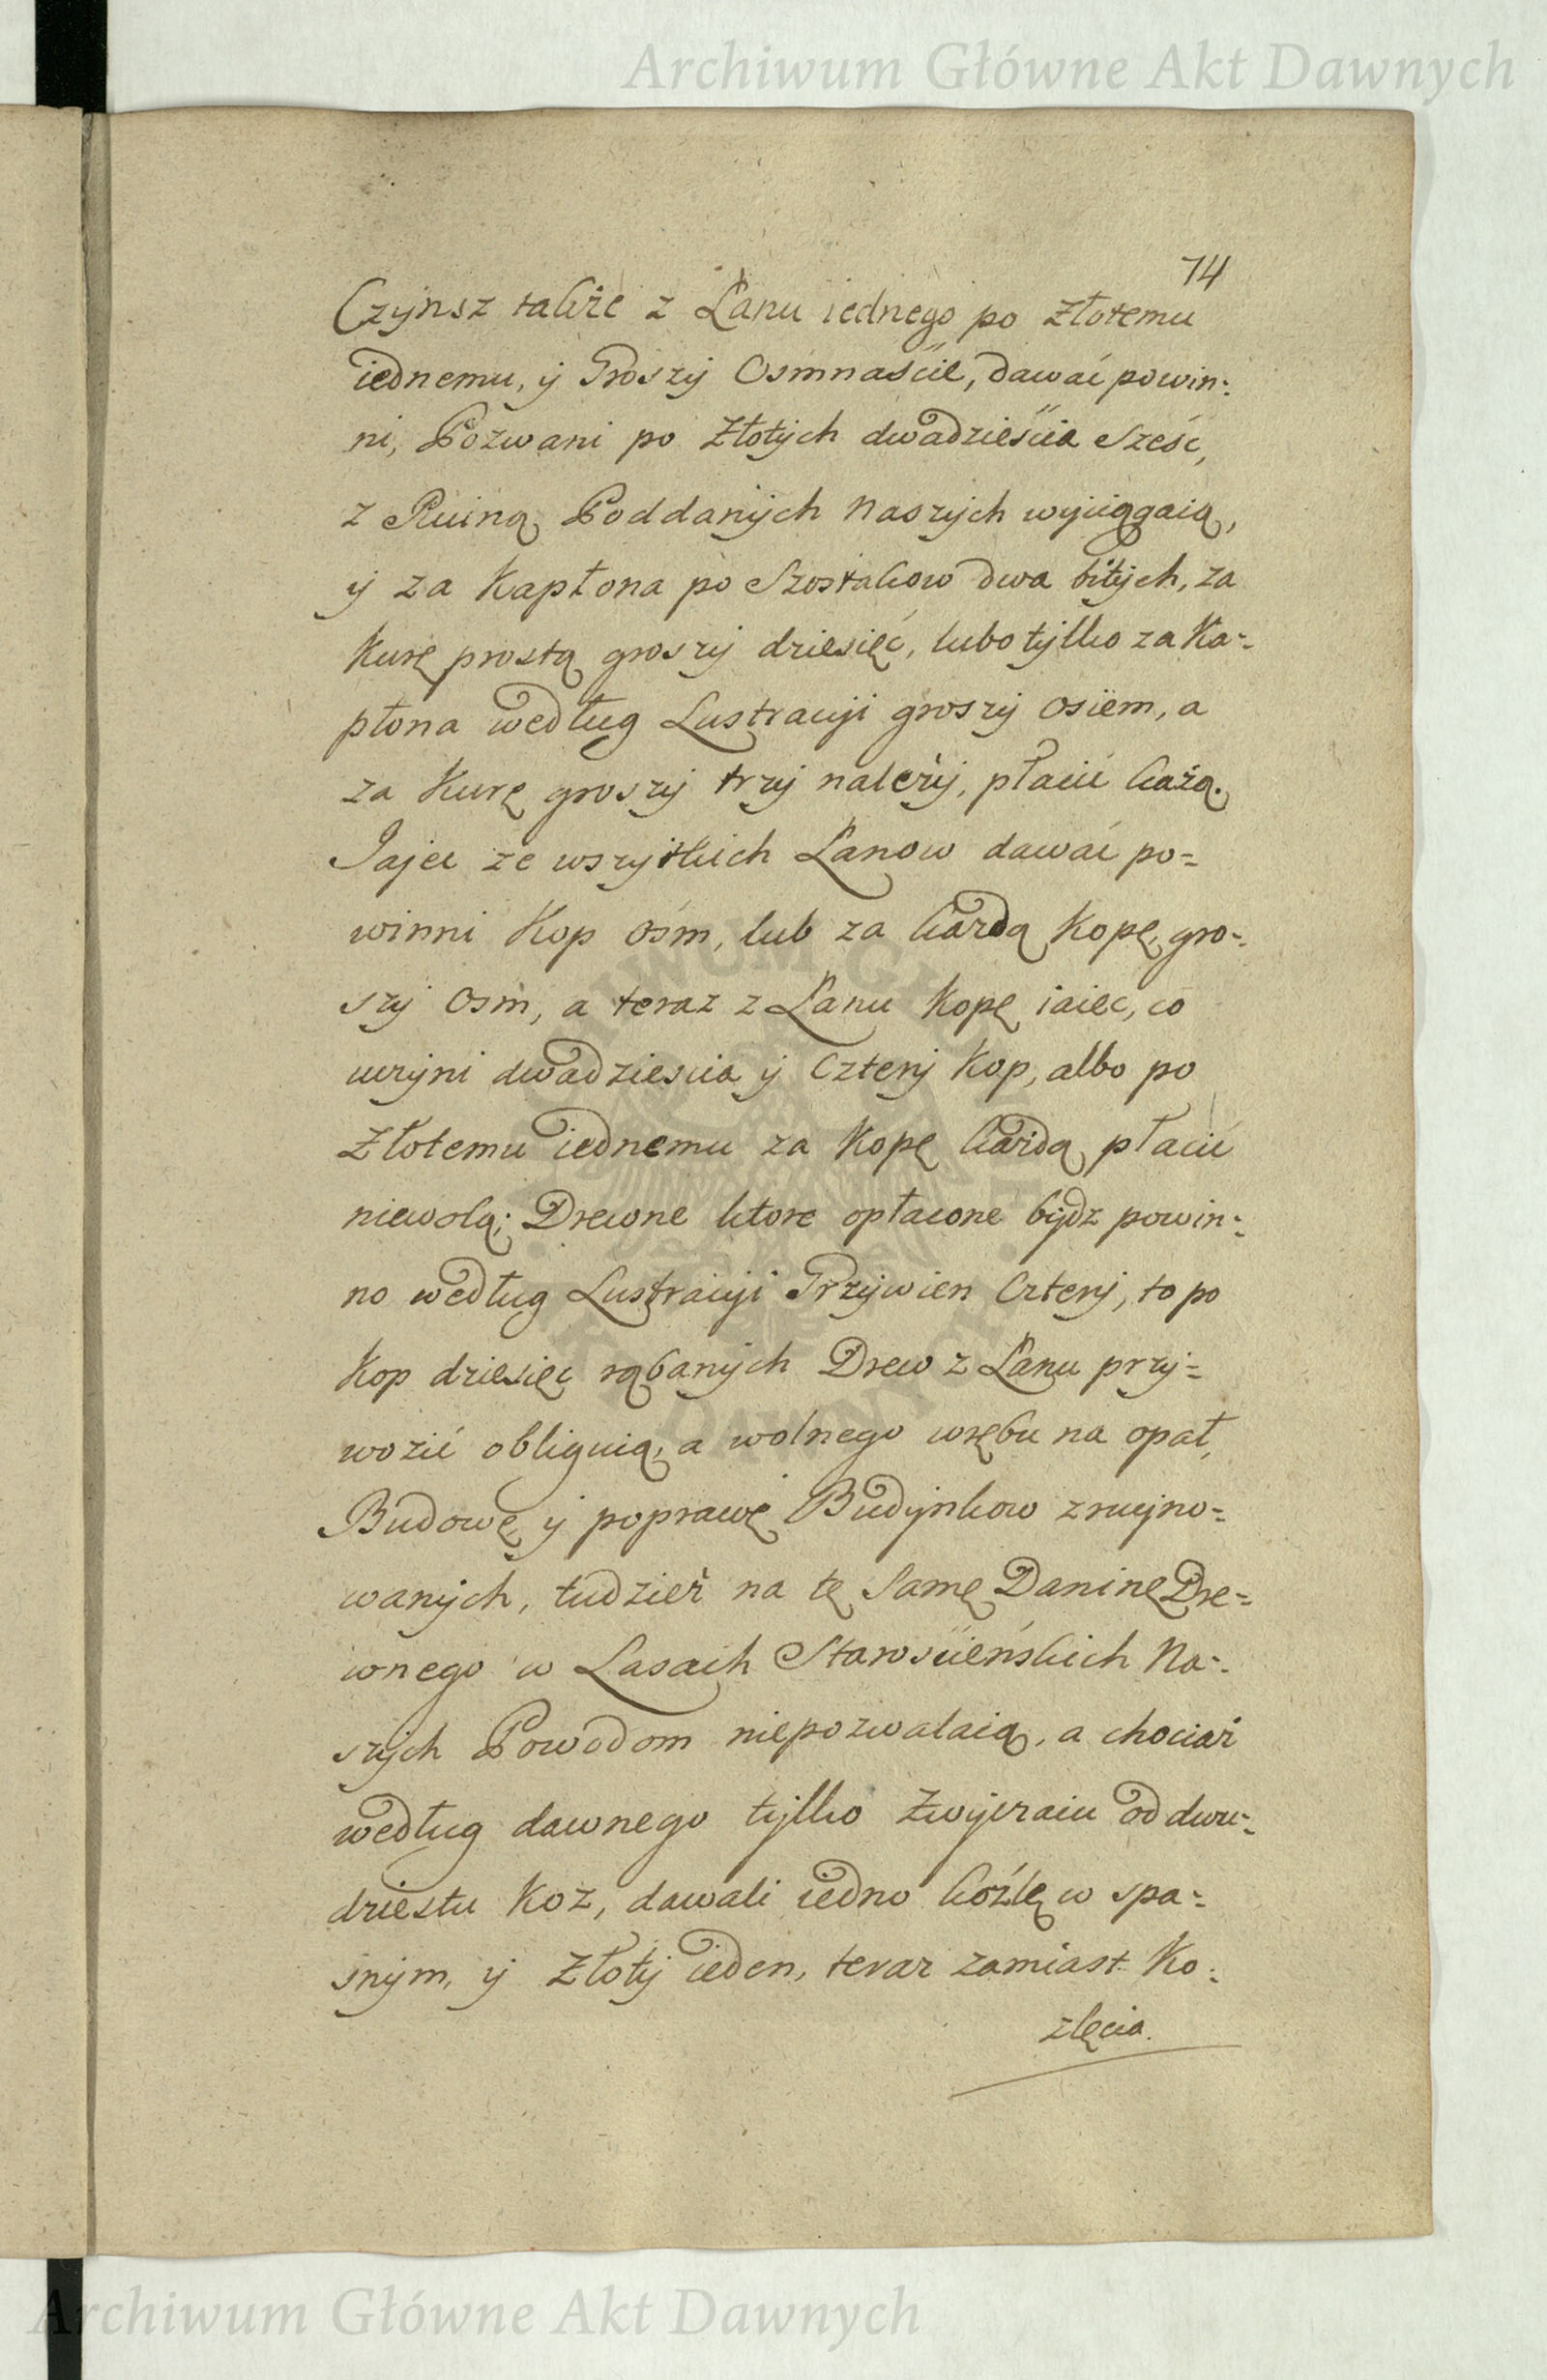 Archiwum Główne Akt Dawnych
74
Czynsz także z Łanu iednego po złotemu
iednemu, y Groszy Osmnaście, dawać powin-
ni, Pozwani po Złotych dwadzieścia Sześć,
z Ruiną Poddanych Naszych wyciągaią,
y za Kapłona po Szostakow dwa bitych, za
Kurę prostą groszy dziesięć, lubo tylko za Ka-
płona według Lustracyi groszy osiem, a
za Kurę groszy trzy należy, płacić każą.
Jajec ze wszystkich Łanow dawać po=
winni Kop ośm, lub za każdą Kopę gro-
szy Osm, a teraz z Łanu Kopę iaiec, co
uczyni dwadziescia y Cztery Kop, albo po
Złotemu iednemu za Kopę każdą płacić
niewolą; Drewne ktore opłacone bydz powin-
no według Lustracyi Grzywien Cztery, to po
Kop dziesięc rąbanych Drew z Łanu przy=
wozić obliguią, a wolnego wrębu na opał,
Budowę y poprawę Budynkow zruyno=
wanych, tudzież na tę Samę Daninę Dre=
wnego w Lasach Starościeńskich Na-
szych Powodom niepozwalaią, a chociaż
według dawnego tylko Zwyczaiu od dwu-
dziestu Koz, dawali iedno koźlę w spa-
snym, y Złoty ieden, teraz zamiast Ko-
zlęcia.
Archiwum Główne Akt Dawnych